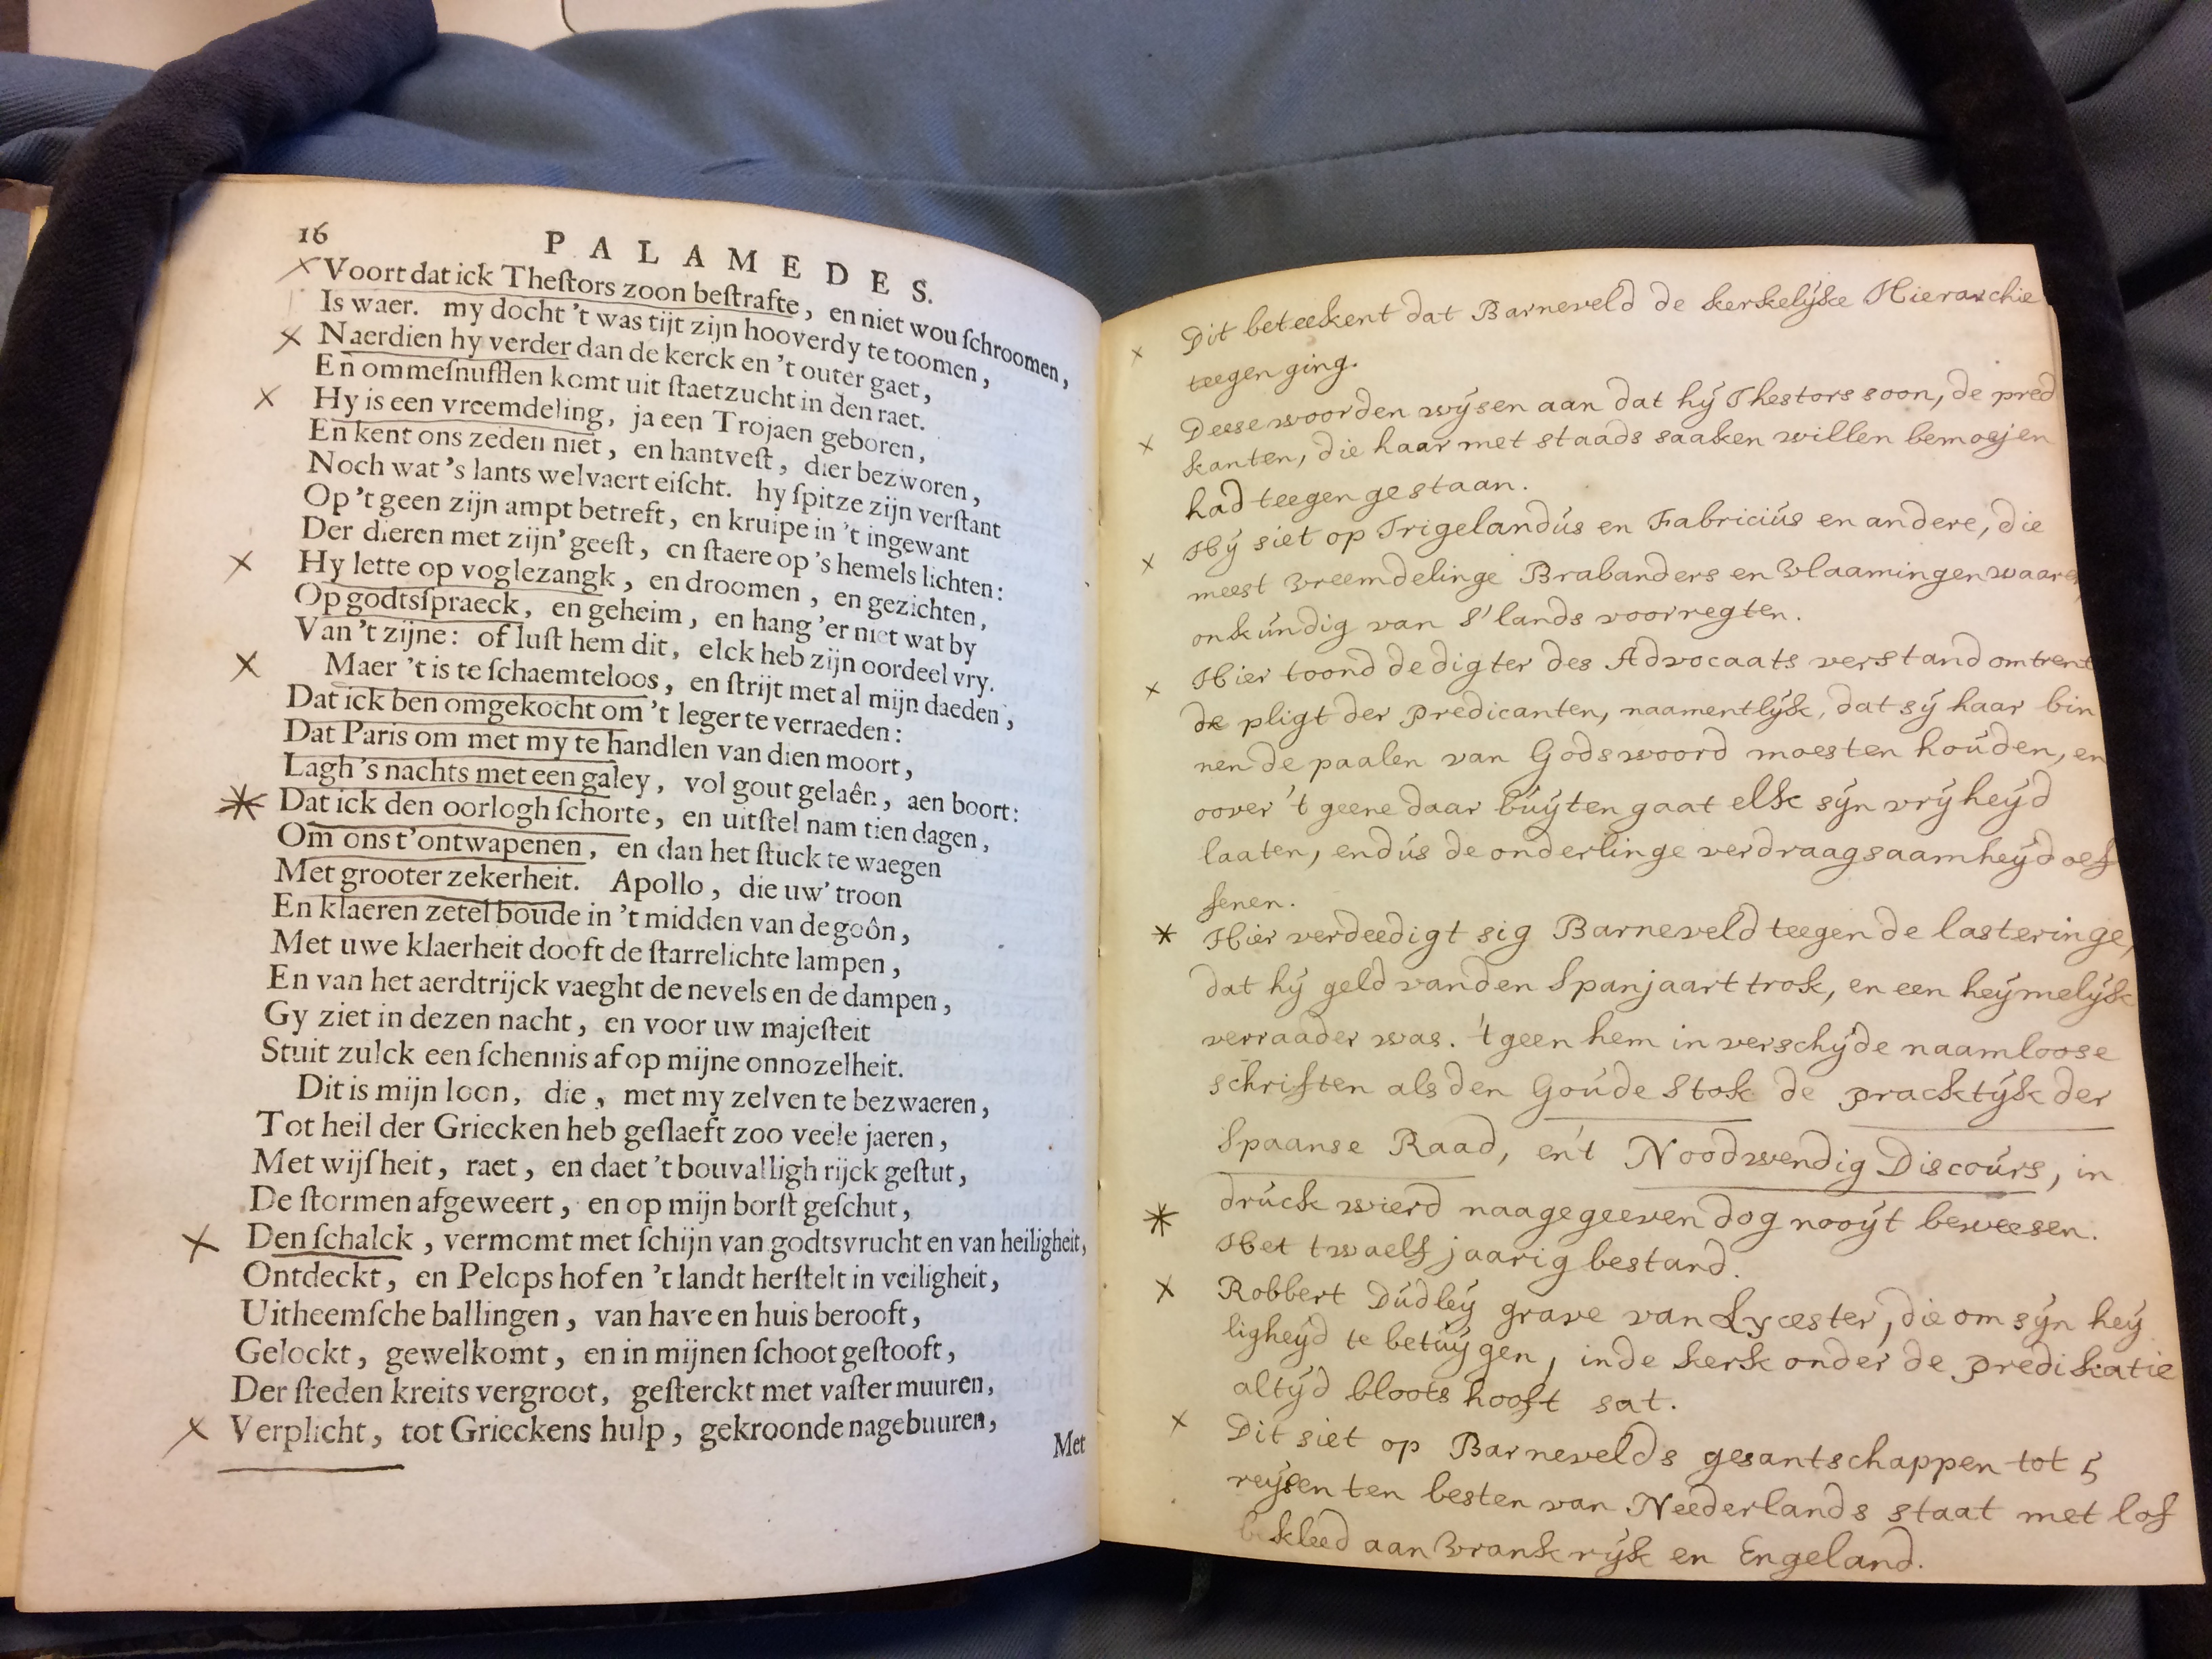 16
PALAMEDES.
Voort dat ick Theſtors zoon beſtrafte, en niet wou ſchroomen,
Is waer. my docht 't was tijt zijn hooverdy te toomen,
Naerdien hy verder dan de kerck en 't outer gaet,
En ommeſnufflen komt uit ſtaetzucht in den raet.
Hy is een vreemdeling, ja een Trojaen geboren,
En kent ons zeden niet, en hantveſt, dier bezworen,
Noch wat 's lants welvaert eiſcht. hy ſpitze zijn verſtant
Op 't geen zijn ampt betreft, en kruipe in 't ingewant
Der dieren met zijn' geeſt, en ſtaere op 's hemels lichten:
Hy lette op voglezangk, en droomen, en gezichten,
Op godtsſpraeck, en geheim, en hang 'er niet wat by
Van 't zijne: of luſt hem dit, elck heb zijn oordeel vry.
Maer 't is te ſchaemteloos, en ſtrijt met al mijn daeden,
Dat ick ben omgekocht om 't leger te verraeden:
Dat Paris om met my te handlen van dien moort,
Lagh 's nachts met een galey, vol gout gelaên, aen boort:
Dat ick den oorlogh ſchorte, en uitſtel nam tien dagen,
Om ons t'ontwapenen, en dan het ſtuck te waegen
Met grooter zekerheit. Apollo, die uw' troon
En klaeren zetel boude in 't midden van de goôn,
Met uwe klaerheit dooft de ſtarrelichte lampen,
En van het aerdtrijck vaeght de nevels en de dampen,
Gy ziet in dezen nacht, en voor uw majeſteit
Stuit zulck een ſchennis af op mijne onnozelheit.
Dit is mijn loon, die, met my zelven te bezwaeren,
Tot heil der Griecken heb geſlaeft zoo veele jaeren,
Met wijſheit, raet, en daet 't bouvalligh rijck geſtut,
De ſtormen afgeweert, en op mijn borſt geſchut,
Den ſchalck, vermomt met ſchijn van godtsvrucht en van heiligheit,
Ontdeckt, en Pelops hof en 't landt herſtelt in veiligheit,
Uitheemſche ballingen, van have en huis berooft,
Gelockt, gewelkomt, en in mijnen ſchoot geſtooft,
Der ſteden kreits vergroot, geſterckt met vaſter muuren,
Verplicht, tot Grieckens hulp, gekroonde nagebuuren,
Met
Dit beteekent dat Barneveld de kerkelyke Hierarchie
teegen ging.
Deese woorden wysen aan dat hy Thestors soon, de pred
kanten, die haar met staads saaken willen bemoejen
had teegen gestaan.
Hy siet op Trigelandus en Fabricius en andere, die
meest vreemdelinge Brabanders en Vlaamingen waare
onkundig van s'lands voorregten.
Hier toond de digter des Advocaats verstand omtrent
de pligt der predicanten, naamentlyk, dat sy haar bin
nen de paalen van Godswoord moesten houden, en
oover 't geene daar buyten gaat elk syn vryheyd
laaten, en dus de onderlinge verdraagsaamheyd oef
fenen.
Hier verdeedigt sig Barneveld teegen de lasteringe,
dat hy geld van den Spanjaart trok, en een heymelyk
verraader was. 't geen hem in verschyde naamloose
schriften als den Goude Stok de pracktyk der
Spaanse Raad, en't Noodwendig Discours, in
druck wierd naagegeeven dog nooyt beweesen.
Het twaelf jaarig bestand.
Robbert Dudley grave van Lycester, die om syn hey
ligheyd te betuygen, in de kerk onder de predikatie
altyd bloots hooft sat.
Dit siet op Barnevelds gesantschappen tot 5
reysen ten besten van Neederlands staat met lof
bekleed aan Vrankryk en Engeland.